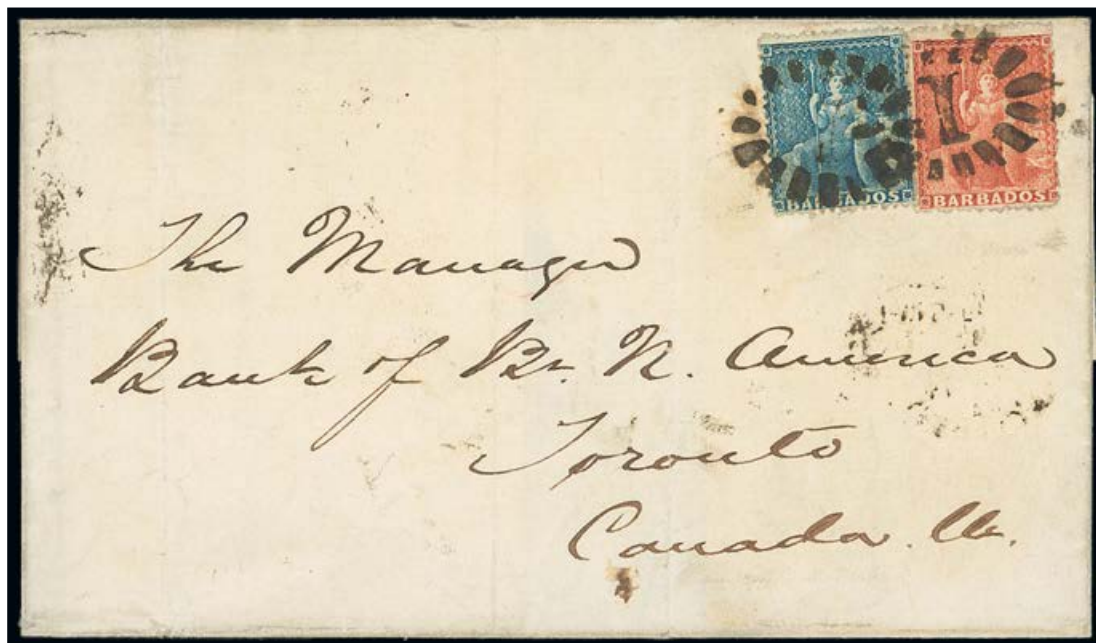 1
BARBADOS
BARBADOS
The Manager
Bank of Br. N. America
Toronto
Canada.